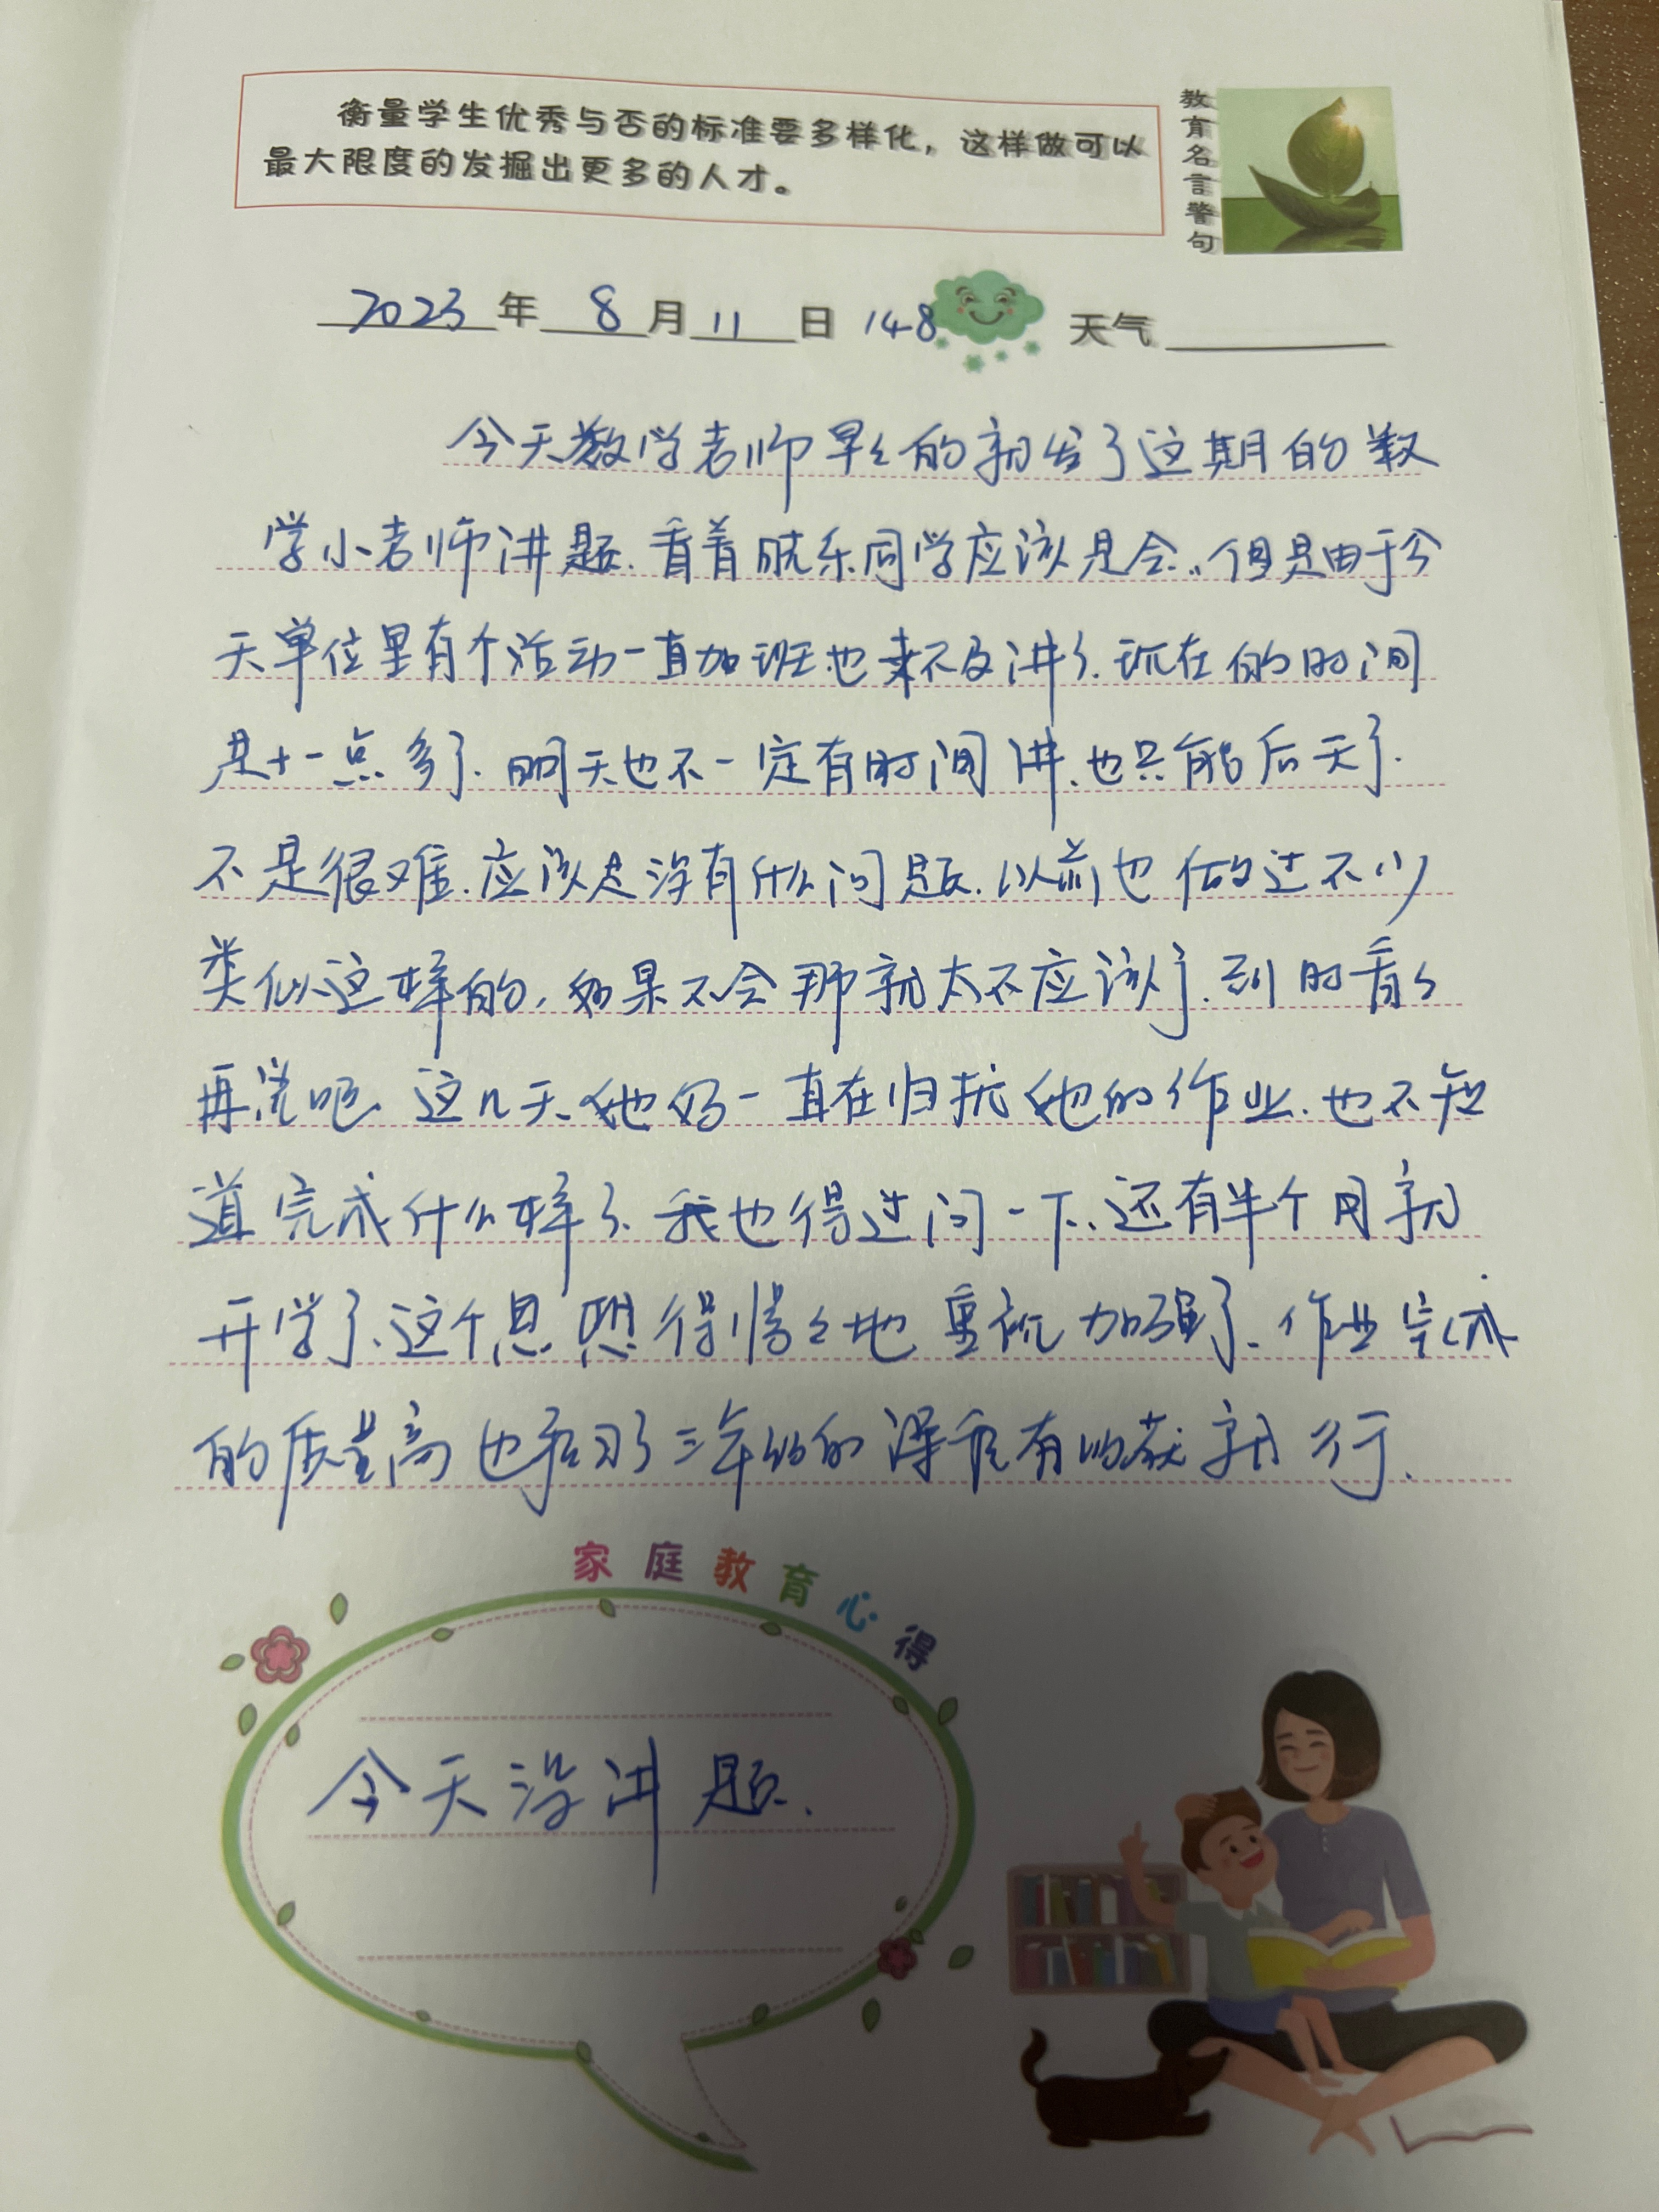 衡量学生优秀与否的标准要多样化，这样做可以
最大限度的发掘出更多的人才。
教育名言警句
2023年8月11日 148 天气
今天数学老师早早的就发了这期的数
学小老师讲题.看着晓乐同学应该是会..但是由于今
天单位里有个活动一直加班也来不及讲了.现在的时间
是十一点多了.明天也不一定有时间讲.也只能后天了.
不是很难.应该是没有什么问题.以前也做过不少
类似这样的,如果不会那就太不应该了.到时看看
再说吧.这几天她妈一直在归拢她的作业.也不知
道完成什么样了.我也得过问一下.还有半个月就
开学了.这个思想得慢慢地重视加强了.作业完成
的质量高也复习了三年级的课程有收获就行.
家庭教育心得
今天没讲题.